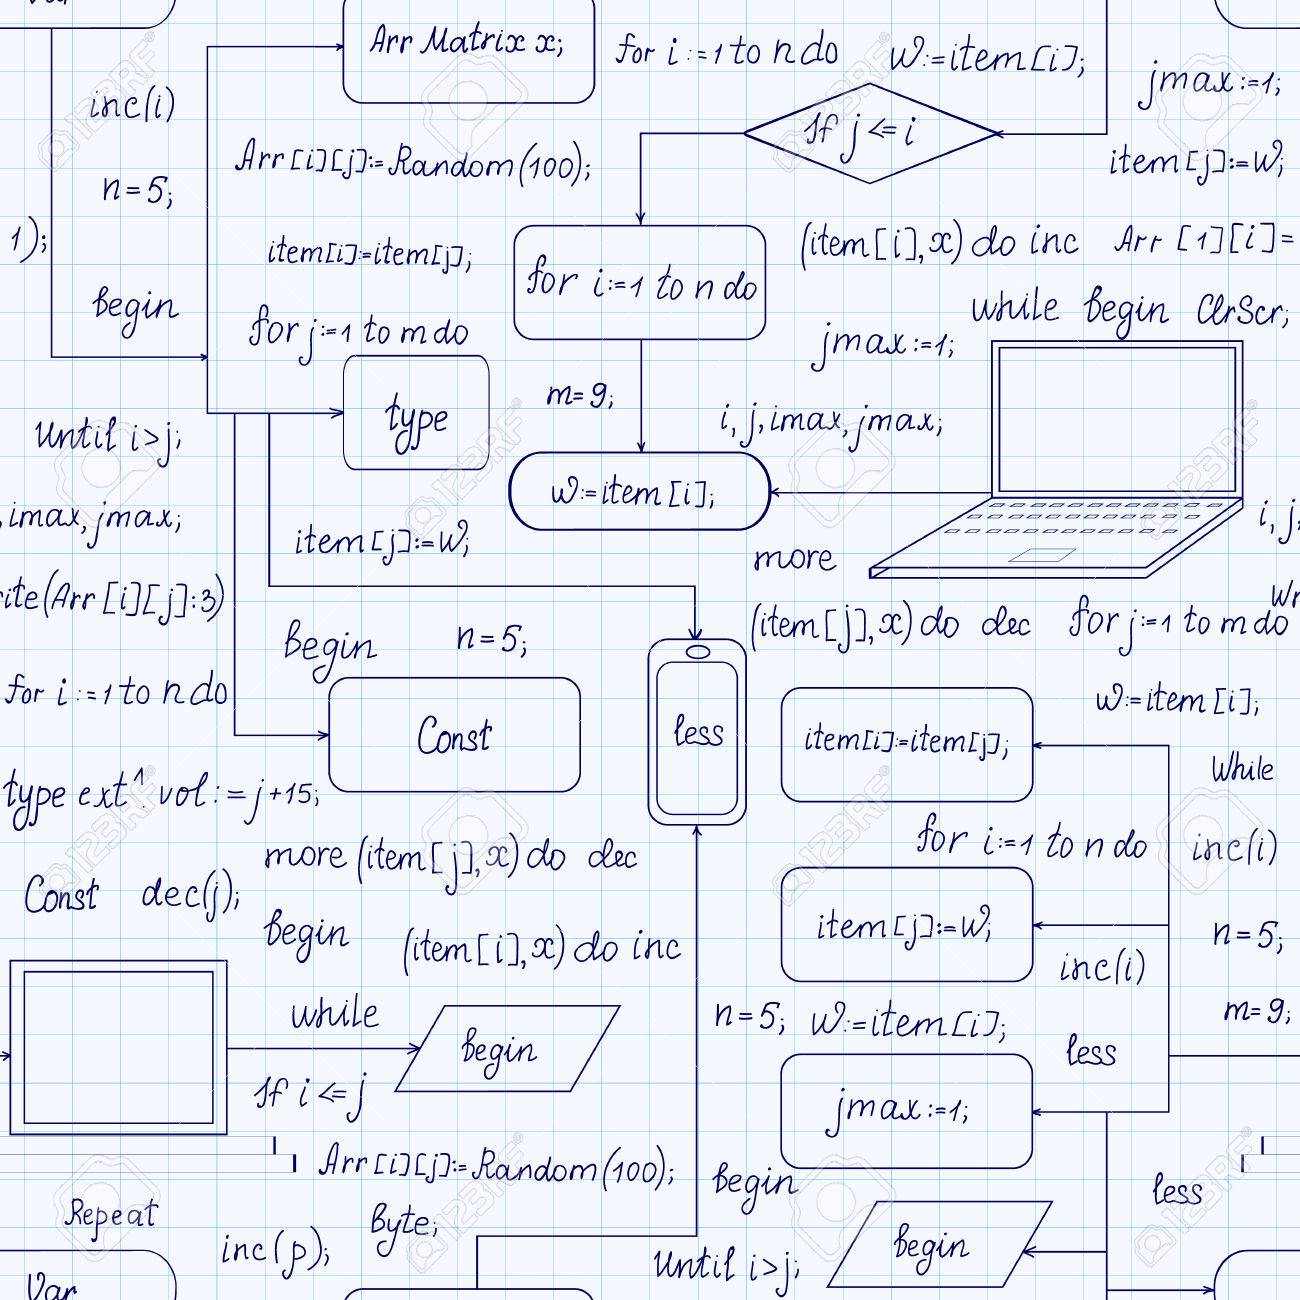 Var
Arr Matrix x;
for i:=1 to n do
w:=item[i];
jmax:=1;
inc(i)
If j<=i
Arr[i][j]:=Random(100);
item[j]:=w;
n=5;
1);
item[i]:=item[j];
for i:=1 to n do
(item[i],x) do inc
Arr [1][i]=
begin
for j:=1 to m do
while begin ClrScr;
jmax:=1;
type
m=9;
i, j, imax, jmax;
Until i>j;
w:=item[i];
, imax, jmax;
item[j]:=w;
more
i, j,
rite(Arr[i][j]:3)
Wr
begin
n=5;
(item[j],x) do dec
for j:=1 to m do
for i:=1 to n do
Const
less
item[i]:=item[j];
w:=item[i];
While
type ext1. vol:=j+15;
more (item[j],x) do dec
for i:=1 to n do
inc(i)
Const dec(j);
begin
(item[i],x) do inc
item[j]:=w;
n=5;
inc(i)
while
begin
n=5;
w:=item[i];
m=9;
less
If i<=j
jmax:=1;
Arr[i][j]:=Random(100);
begin
less
Repeat
Byte;
inc(p);
Until i>j;
begin
Var
123RF